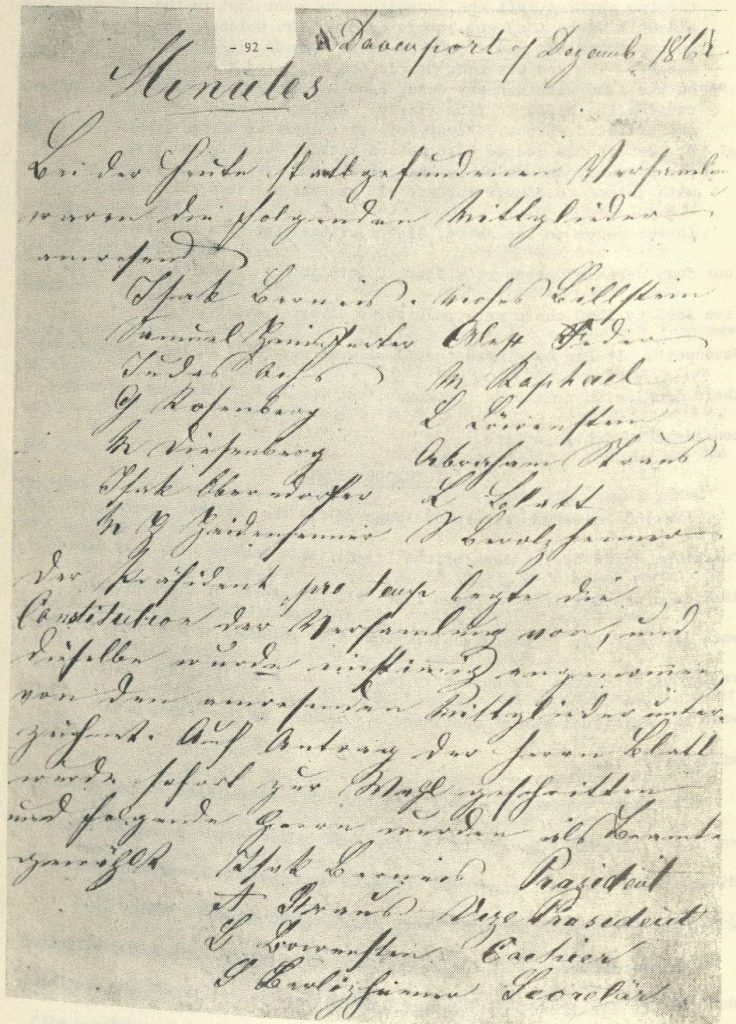 - 92 -
Davenport 7 Dezemb. 186
Minutes
Bei der Heute stattgefundenen Versamlu
waren die folgenden Mittglieder
anwesend
Isak Berneis. Moses Billstein
Samuel Alex Feder
Judas Ochs M Raphael
G Rosenberg L Löwenstein
M Diesenberg Abraham Straus
Isak Oberndorfer L Blatt
M S Berolzheimer
Der Präsident pro temp legte die
Constitution der Versamlung vor, und
dieselbe wurde einstimmig angenommen,
von den anwesenden Mittglieder unter-
zeichnet. Auf Antrag der Herrn Blatt
wurde sofort zur Wahl geschritten
und folgende Herrn wurden als Beamte
gewählt Isak Berneis Prazident
A Straus Vize Prasedent
L Löwenstein Casiier
S Berlizheimer Secretär